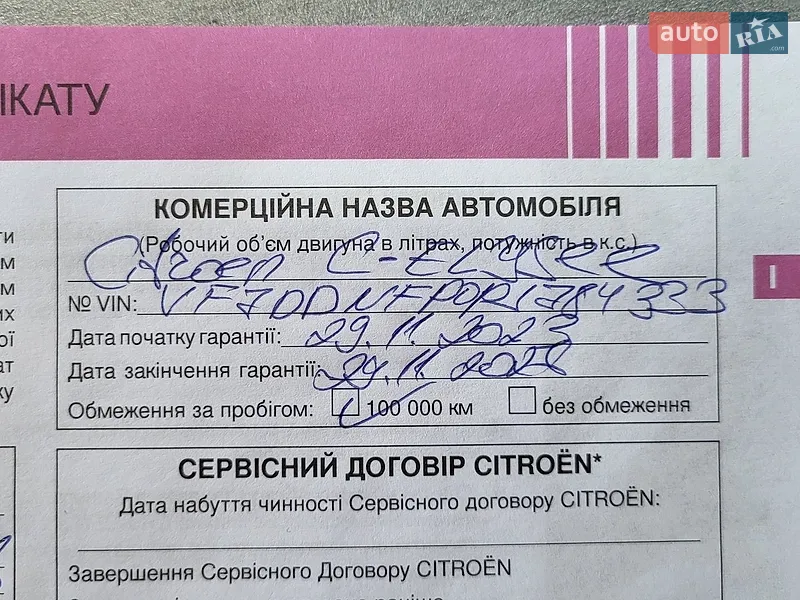 auto RIA
.com
ІКАТУ
КОМЕРЦІЙНА НАЗВА АВТОМОБІЛЯ
(Робочий об'єм двигуна в літрах, потужність в к.с.)
Citroen C-ELYSEE
I
№ VIN:
Дата початку гарантії: 29.11.2023
Дата закінчення гарантії:
Обмеження за пробігом: 100 000 км без обмеження
СЕРВІСНИЙ ДОГОВІР CITROËN*
Дата набуття чинності Сервісного договору CITROËN:
Завершення Сервісного Договору CITROËN